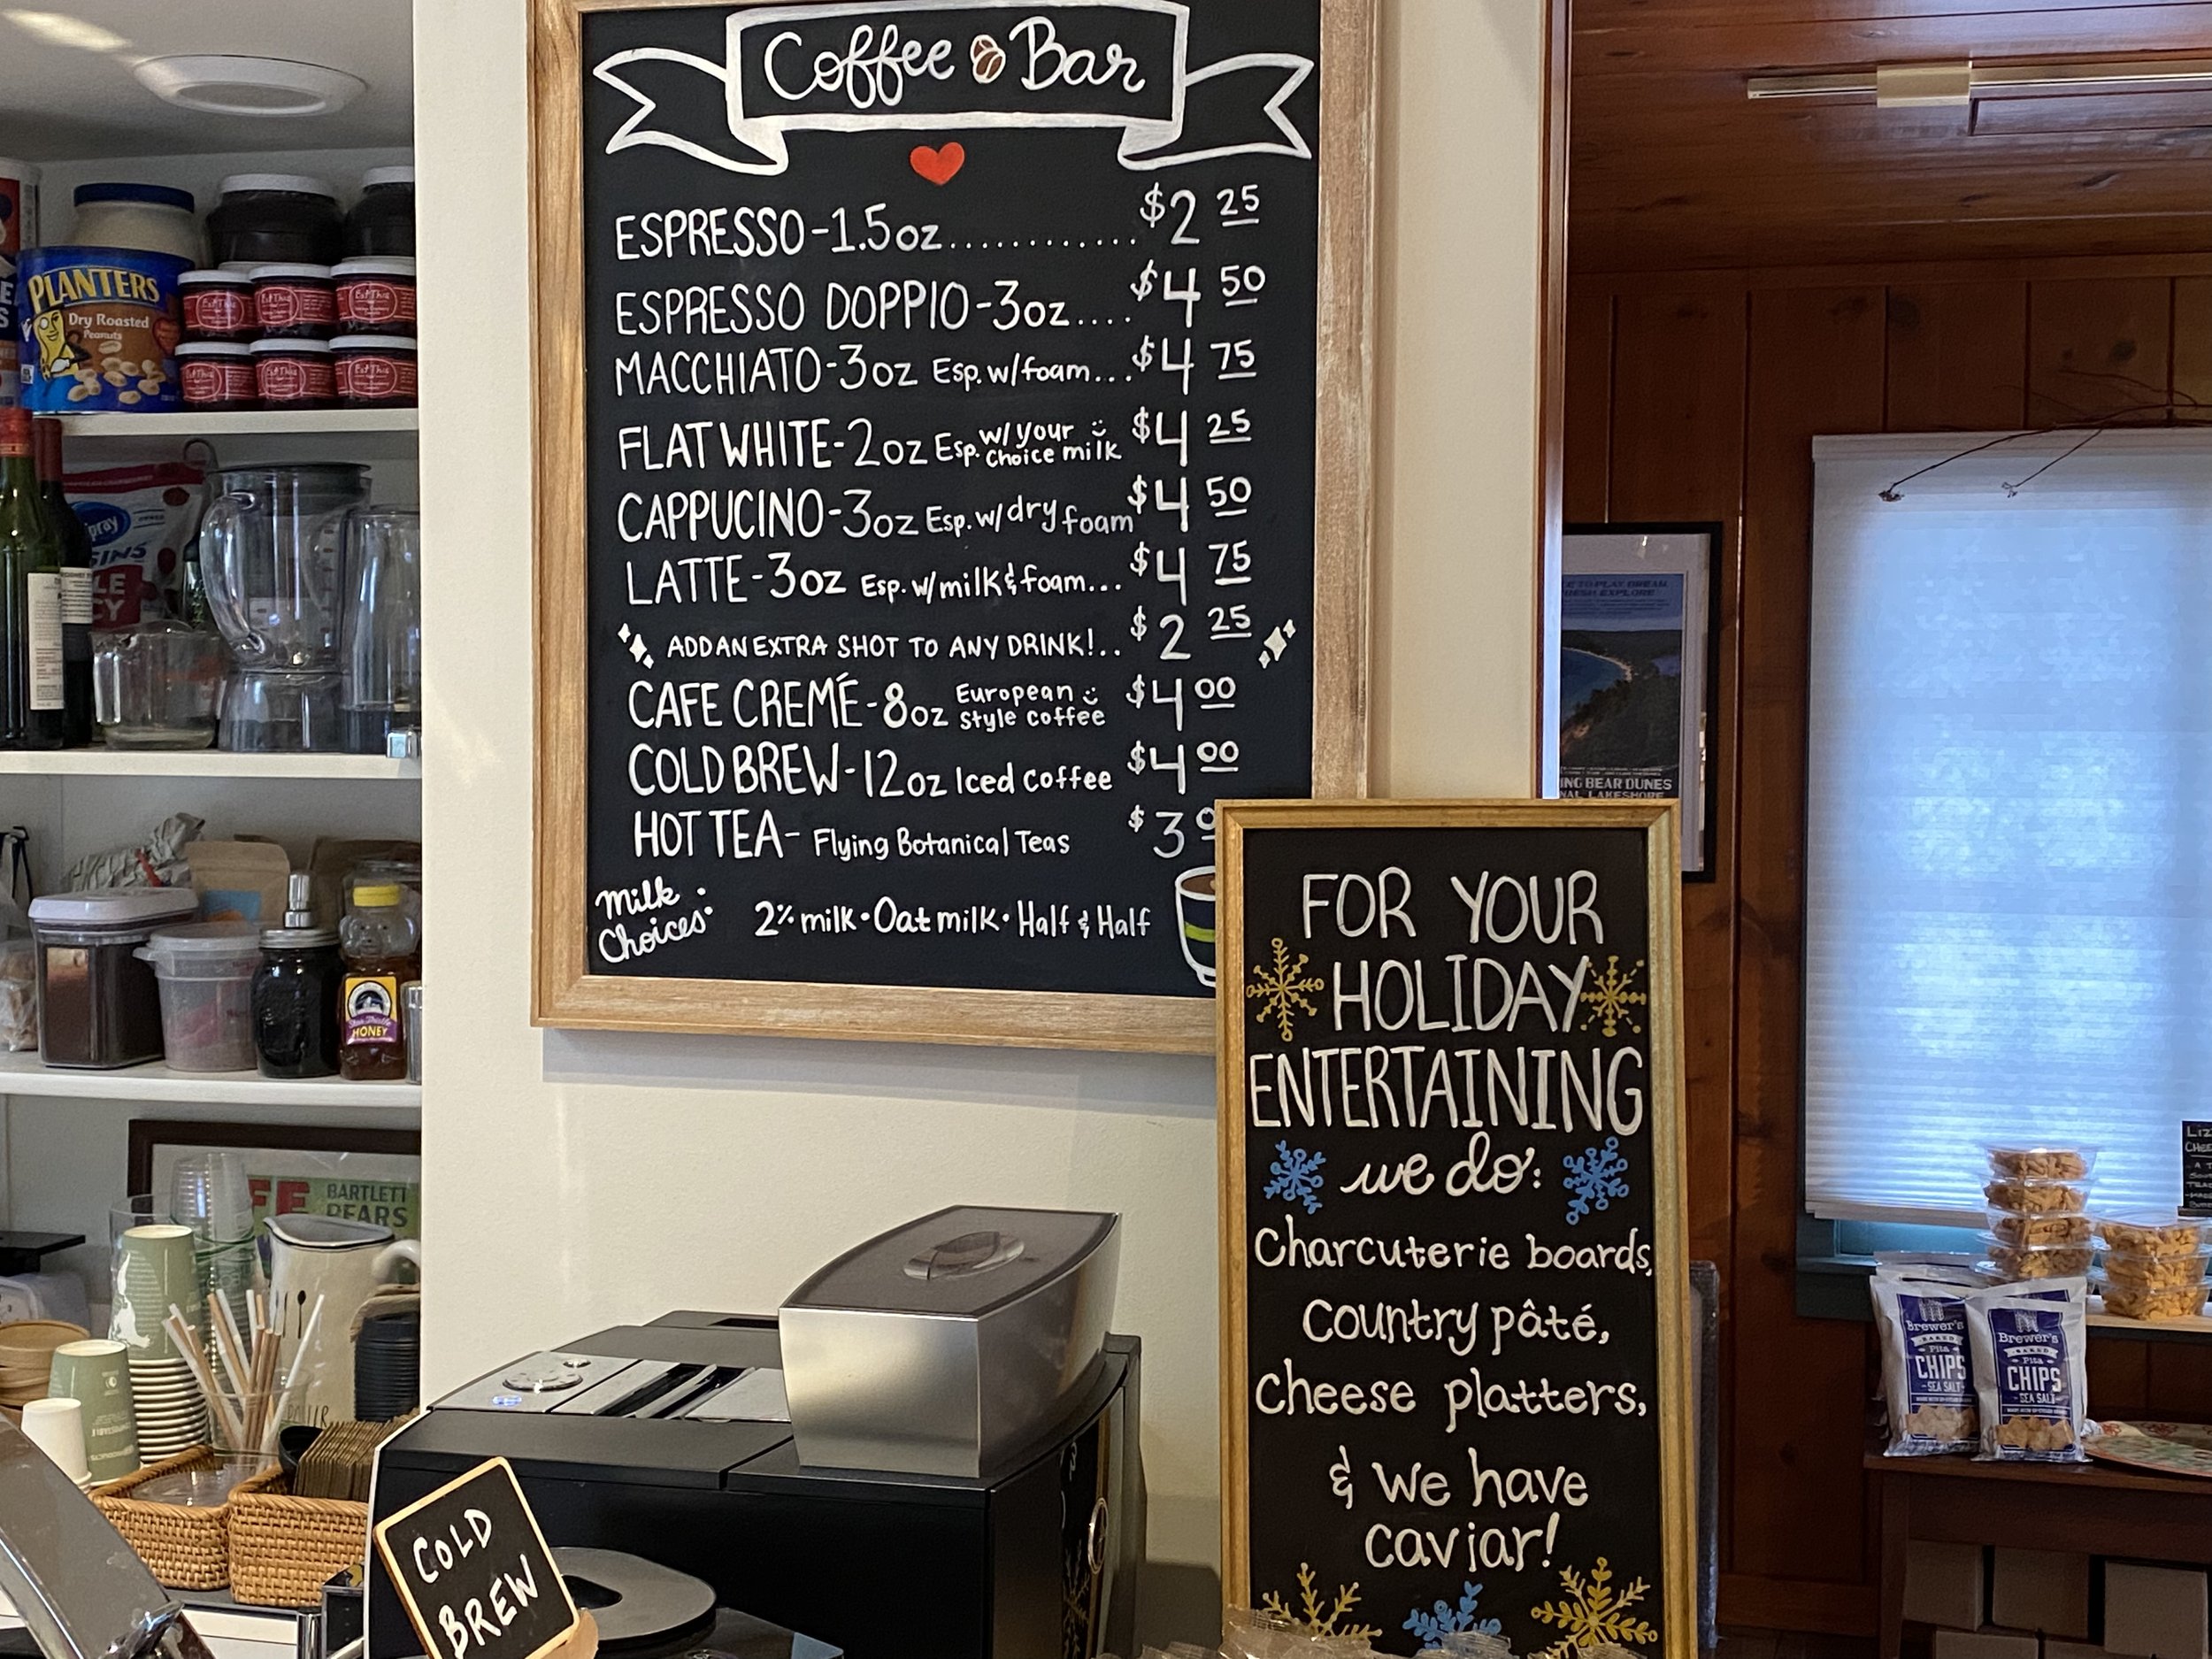 Coffee Bar
ESPRESSO-1.5oz............$2 25
ESPRESSO DOPPIO-3oz....$4 50
MACCHIATO-3oz Esp. w/foam...$4 75
FLAT WHITE-2oz Esp. w/ your choice milk $4 25
CAPPUCINO-3oz Esp. w/ dry foam $4 50
LATTE-3oz Esp. w/milk & foam...$4 75
ADD AN EXTRA SHOT TO ANY DRINK!..$2 25
CAFE CREMÉ-8oz European style coffee $4 00
COLD BREW-12oz Iced coffee $4 00
HOT TEA- Flying Botanical Teas $3
Milk Choices: 2% milk • Oat milk • Half & Half
FOR YOUR
HOLIDAY
ENTERTAINING
we do:
Charcuterie boards,
Country pâté,
Cheese platters,
& we have
caviar!
COLD
BREW
PLANTERS
Dry Roasted
Peanuts
Eat This
Eat This
Eat This
Eat This
Eat This
Eat This
HONEY
BARTLETT
PEARS
ING BEAR DUNES
NAL LAKESHORE
Brewer's
BAKED
Pita
CHIPS
SEA SALT
Brewer's
BAKED
Pita
CHIPS
SEA SALT